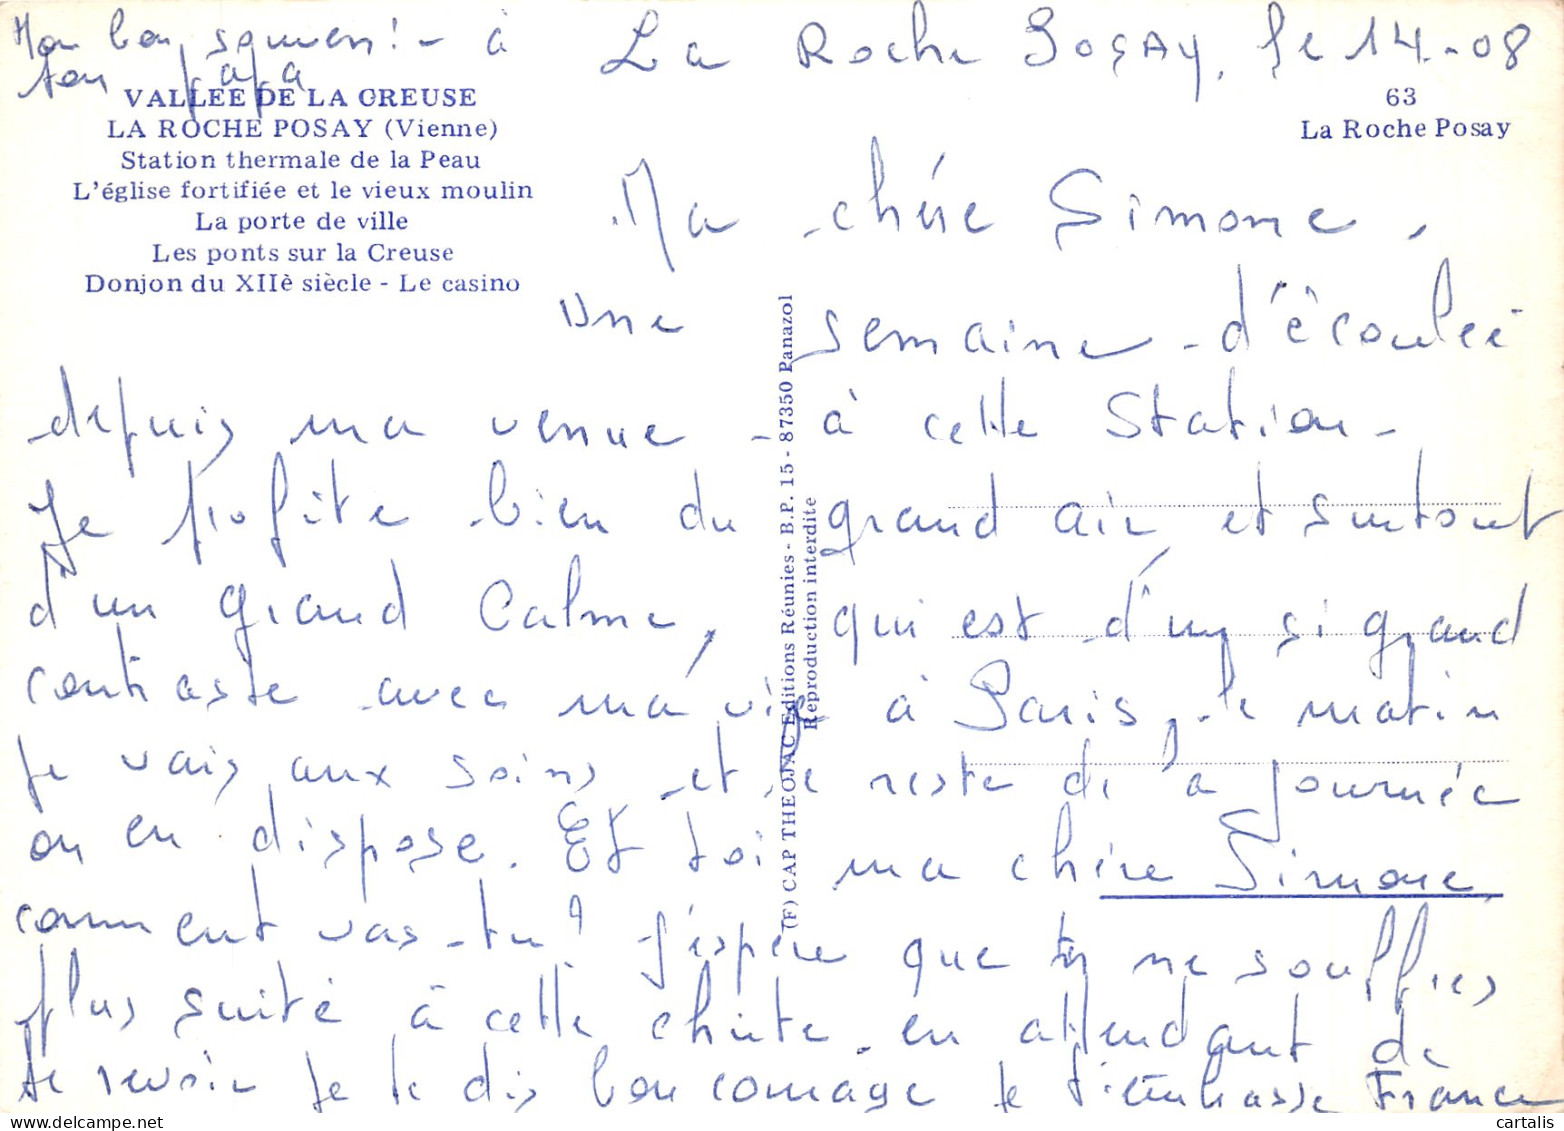 Mon bon souvenir - à
ton papa
La Roche Posay, le 14-08
VALLEE DE LA CREUSE
LA ROCHE POSAY (Vienne)
Station thermale de la Peau
L'église fortifiée et le vieux moulin
La porte de ville
Les ponts sur la Creuse
Donjon du XIIè siècle - Le casino
63
La Roche Posay
Ma chére Simone,
Une semaine d'écoulée
depuis ma venue - à cette Station -
Je profite bien du grand air et surtout
d'un grand Calme, qui est d'un si grand
contraste avec ma vie à Paris, le matin
je vais aux soins et le reste de la journée
on en dispose. Et toi ma chère Simone
comment vas-tu? j'espère que tu ne souffres
plus suite à cette chute - en attendant de
te revoir je te dis bon courage je t'embrasse France
(F) CAP THEOJAC Editions Réunies - B.P. 15 - 87350 Panazol
Reproduction interdite
cartalis